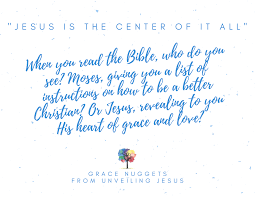 "JESUS IS THE CENTER OF IT ALL"
When you read the Bible, who do you
see? Moses, giving you a list of
instructions on how to be a better
Christian? Or Jesus, revealing to you
His heart of grace and love?
GRACE NUGGETS
FROM UNVEILING JESUS